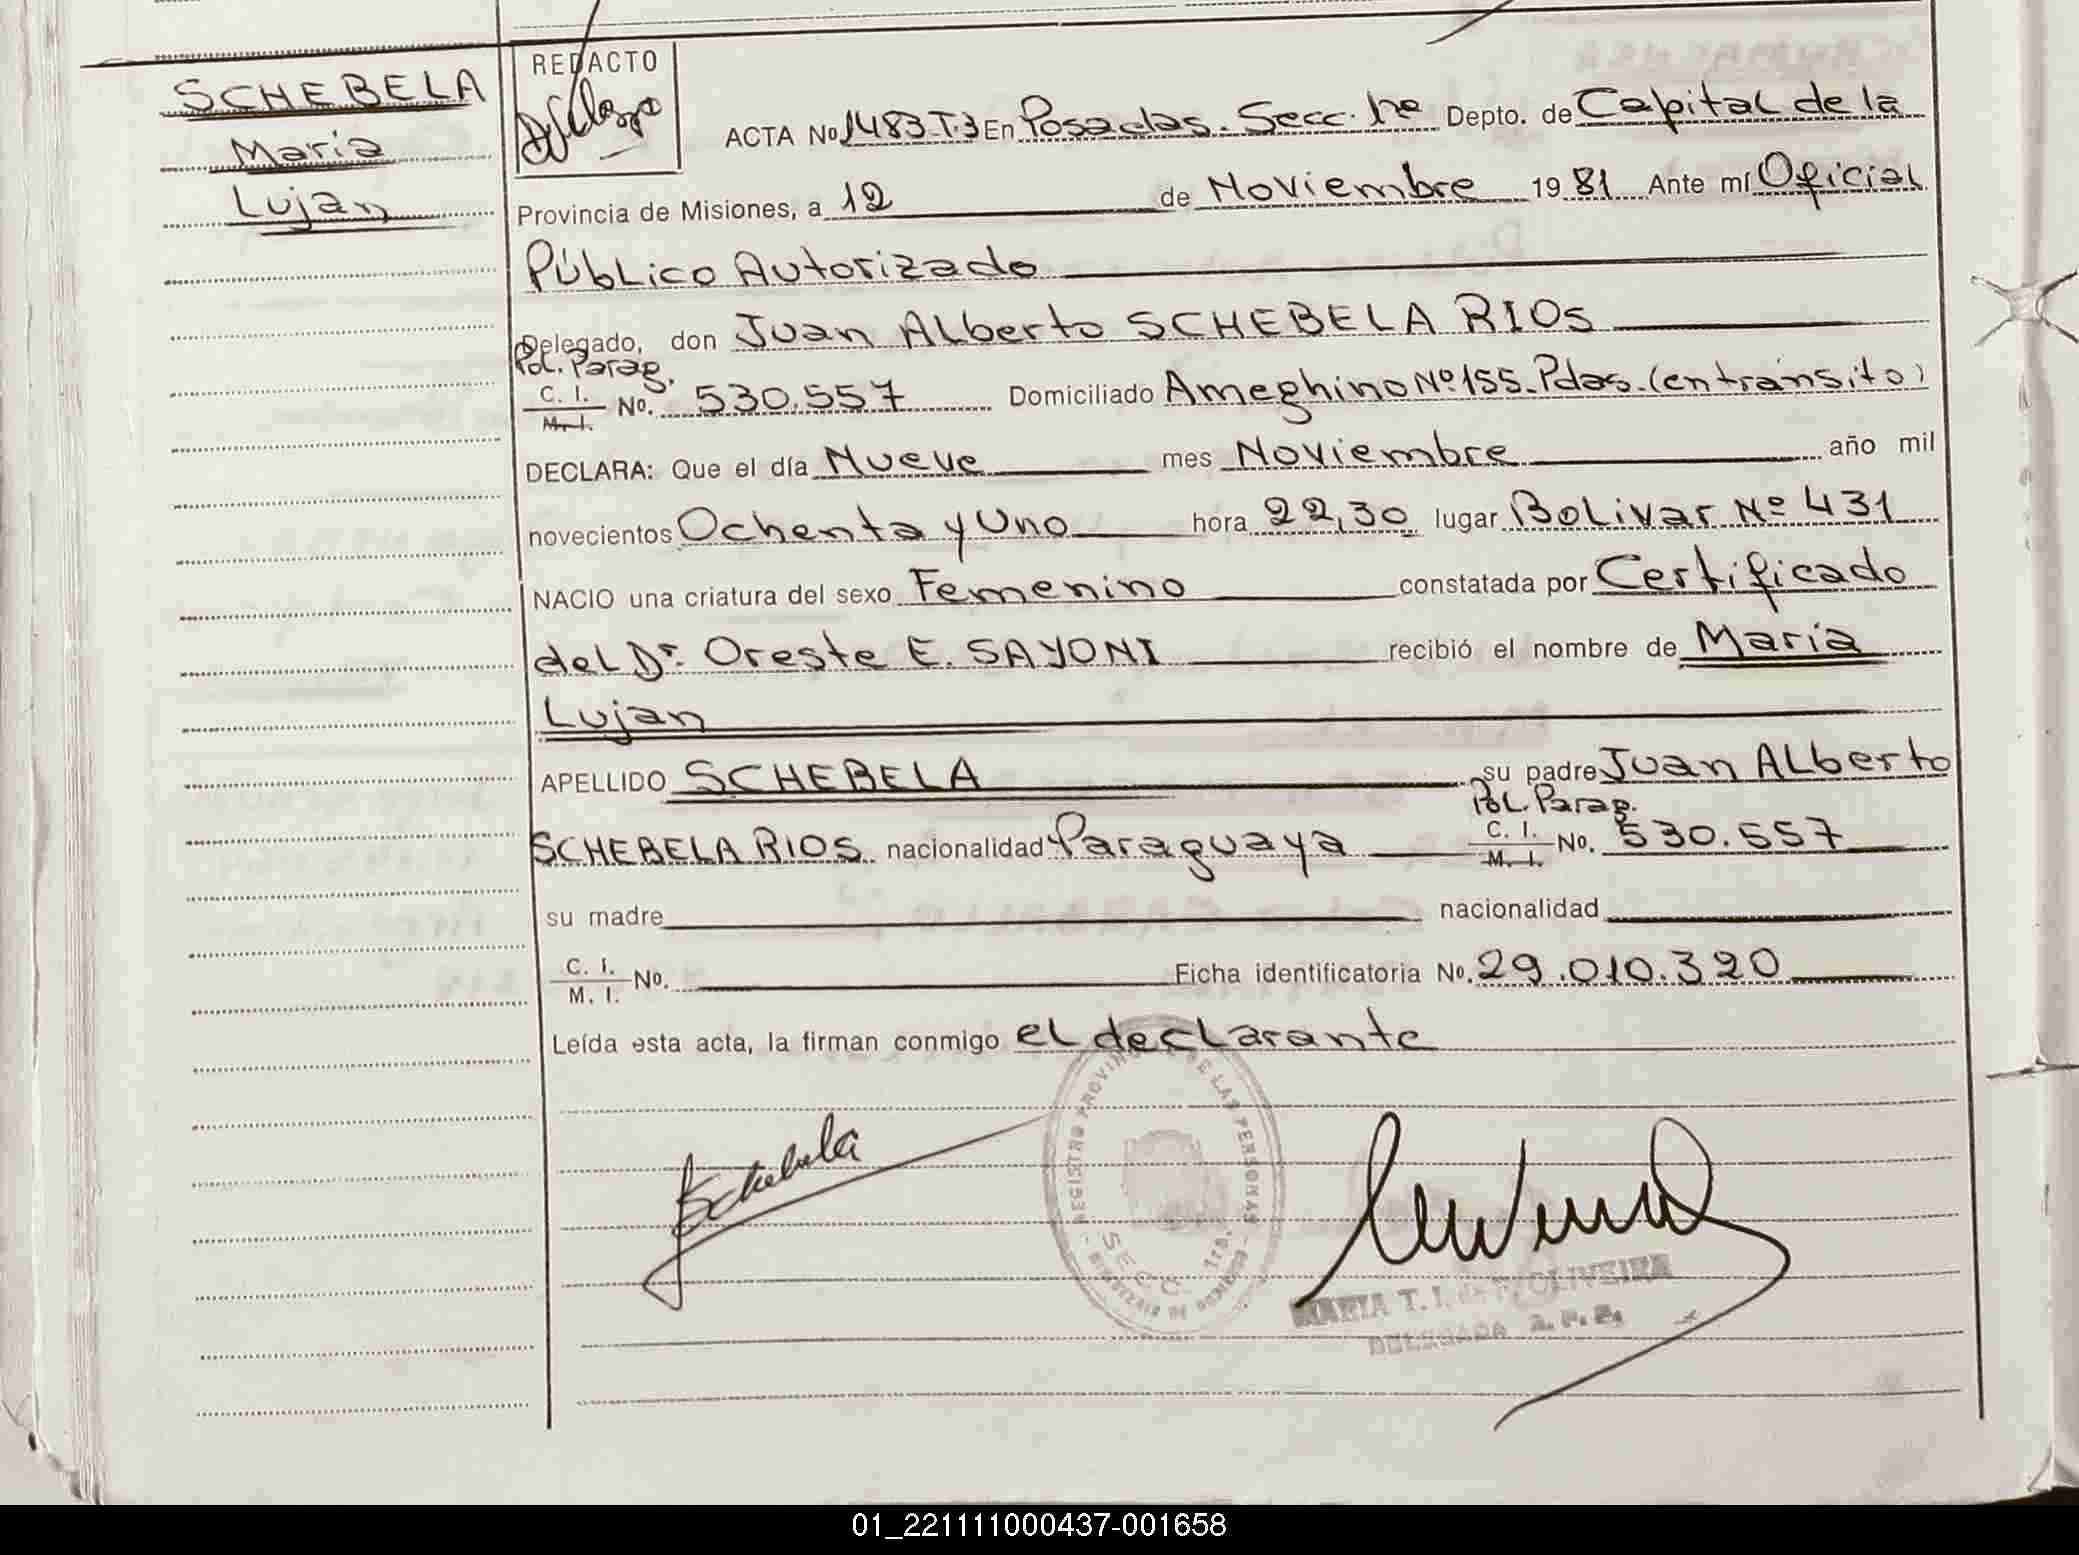 SCHEBELA
Maria
Lujan
REDACTO
ACTA No 1483.T.3 En Posadas. Secc. 1ra Depto. de Capital de la
Provincia de Misiones, a 12 de Noviembre 1981 Ante mí Oficial
Público Autorizado
Delegado, don Juan Alberto SCHEBELA RIOS
Pol. Parag.
C. I. M. I. No. 530.557 Domiciliado Ameghino Nº 155. Pdas. (en tránsito)
DECLARA: Que el día Nueve mes Noviembre año mil
novecientos Ochenta y Uno hora 22,30 lugar Bolivar Nº 431
NACIO una criatura del sexo Femenino constatada por Certificado
del Dr. Oreste E. SAYONI recibió el nombre de Maria
Lujan
APELLIDO SCHEBELA su padre Juan Alberto
Pol. Parag.
SCHEBELA RIOS nacionalidad Paraguaya C. I. M. I. No. 530.557
su madre nacionalidad
C. I. M. I. No. Ficha identificatoria No. 29.010.320
Leída esta acta, la firman conmigo el declarante
Schebela
REGISTRO PROVINCIAL DE LAS PERSONAS
SECC. 1ra.
MARIA T. OLIVEIRA
DELEGADA
01_221111000437-001658